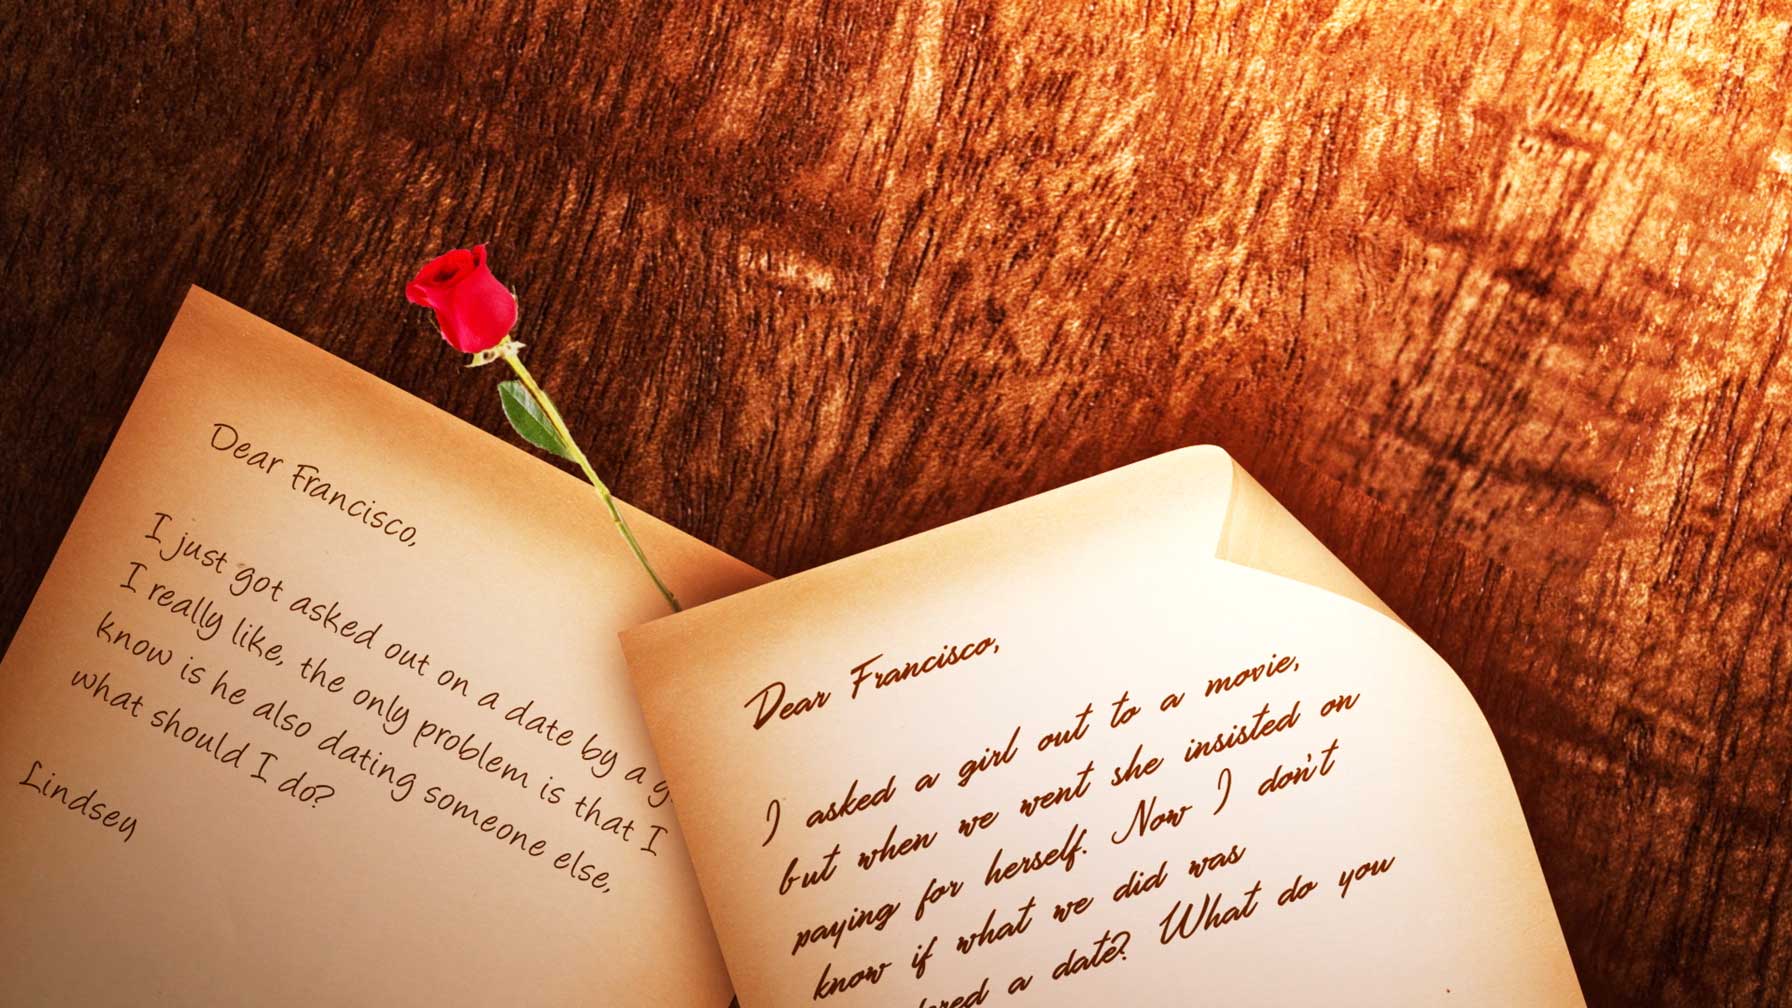 Dear Francisco,
I just got asked out on a date by a
I really like, the only problem is that I
know is he also dating someone else,
what should I do?
Lindsey
Dear Francisco,
I asked a girl out to a movie,
but when we went she insisted on
paying for herself. Now I don't
know if what we did was
a date? What do you